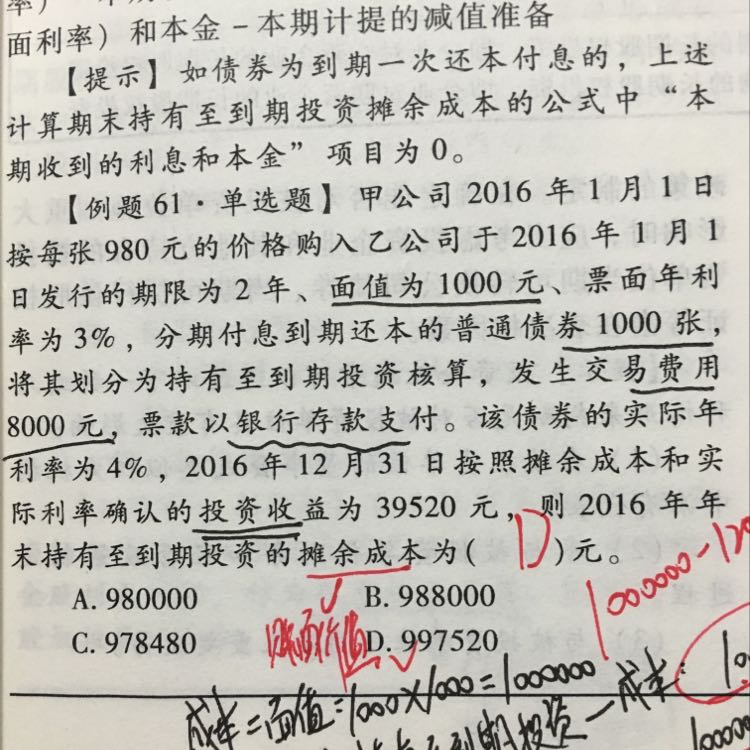 面利率）和本金－本期计提的减值准备
【提示】如债券为到期一次还本付息的，上述
计算期末持有至到期投资摊余成本的公式中“本
期收到的利息和本金”项目为0。
【例题61·单选题】甲公司2016年1月1日
按每张980元的价格购入乙公司于2016年1月1
日发行的期限为2年、面值为1000元、票面年利
率为3%，分期付息到期还本的普通债券1000张，
将其划分为持有至到期投资核算，发生交易费用
8000元，票款以银行存款支付。该债券的实际年
利率为4%，2016年12月31日按照摊余成本和实
际利率确认的投资收益为39520元，则2016年年
末持有至到期投资的摊余成本为(D)元。
1000000-120
A. 980000 B. 988000
C. 978480 D. 997520
成本=面值=1000×1000=1000000
到期投资—成本: